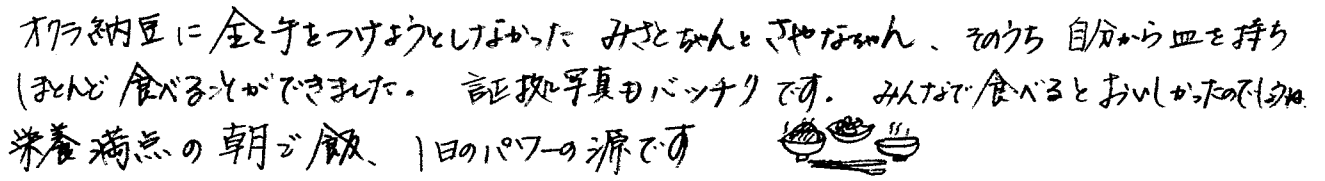 オクラ納豆に全く手をつけようとしなかったみさとちゃんとさやなちゃん、そのうち自分から皿を持ち
ほとんど食べることができました。証拠写真もバッチリです。みんなで食べるとおいしかったのでしょうね
栄養満点の朝ご飯、1日のパワーの源です